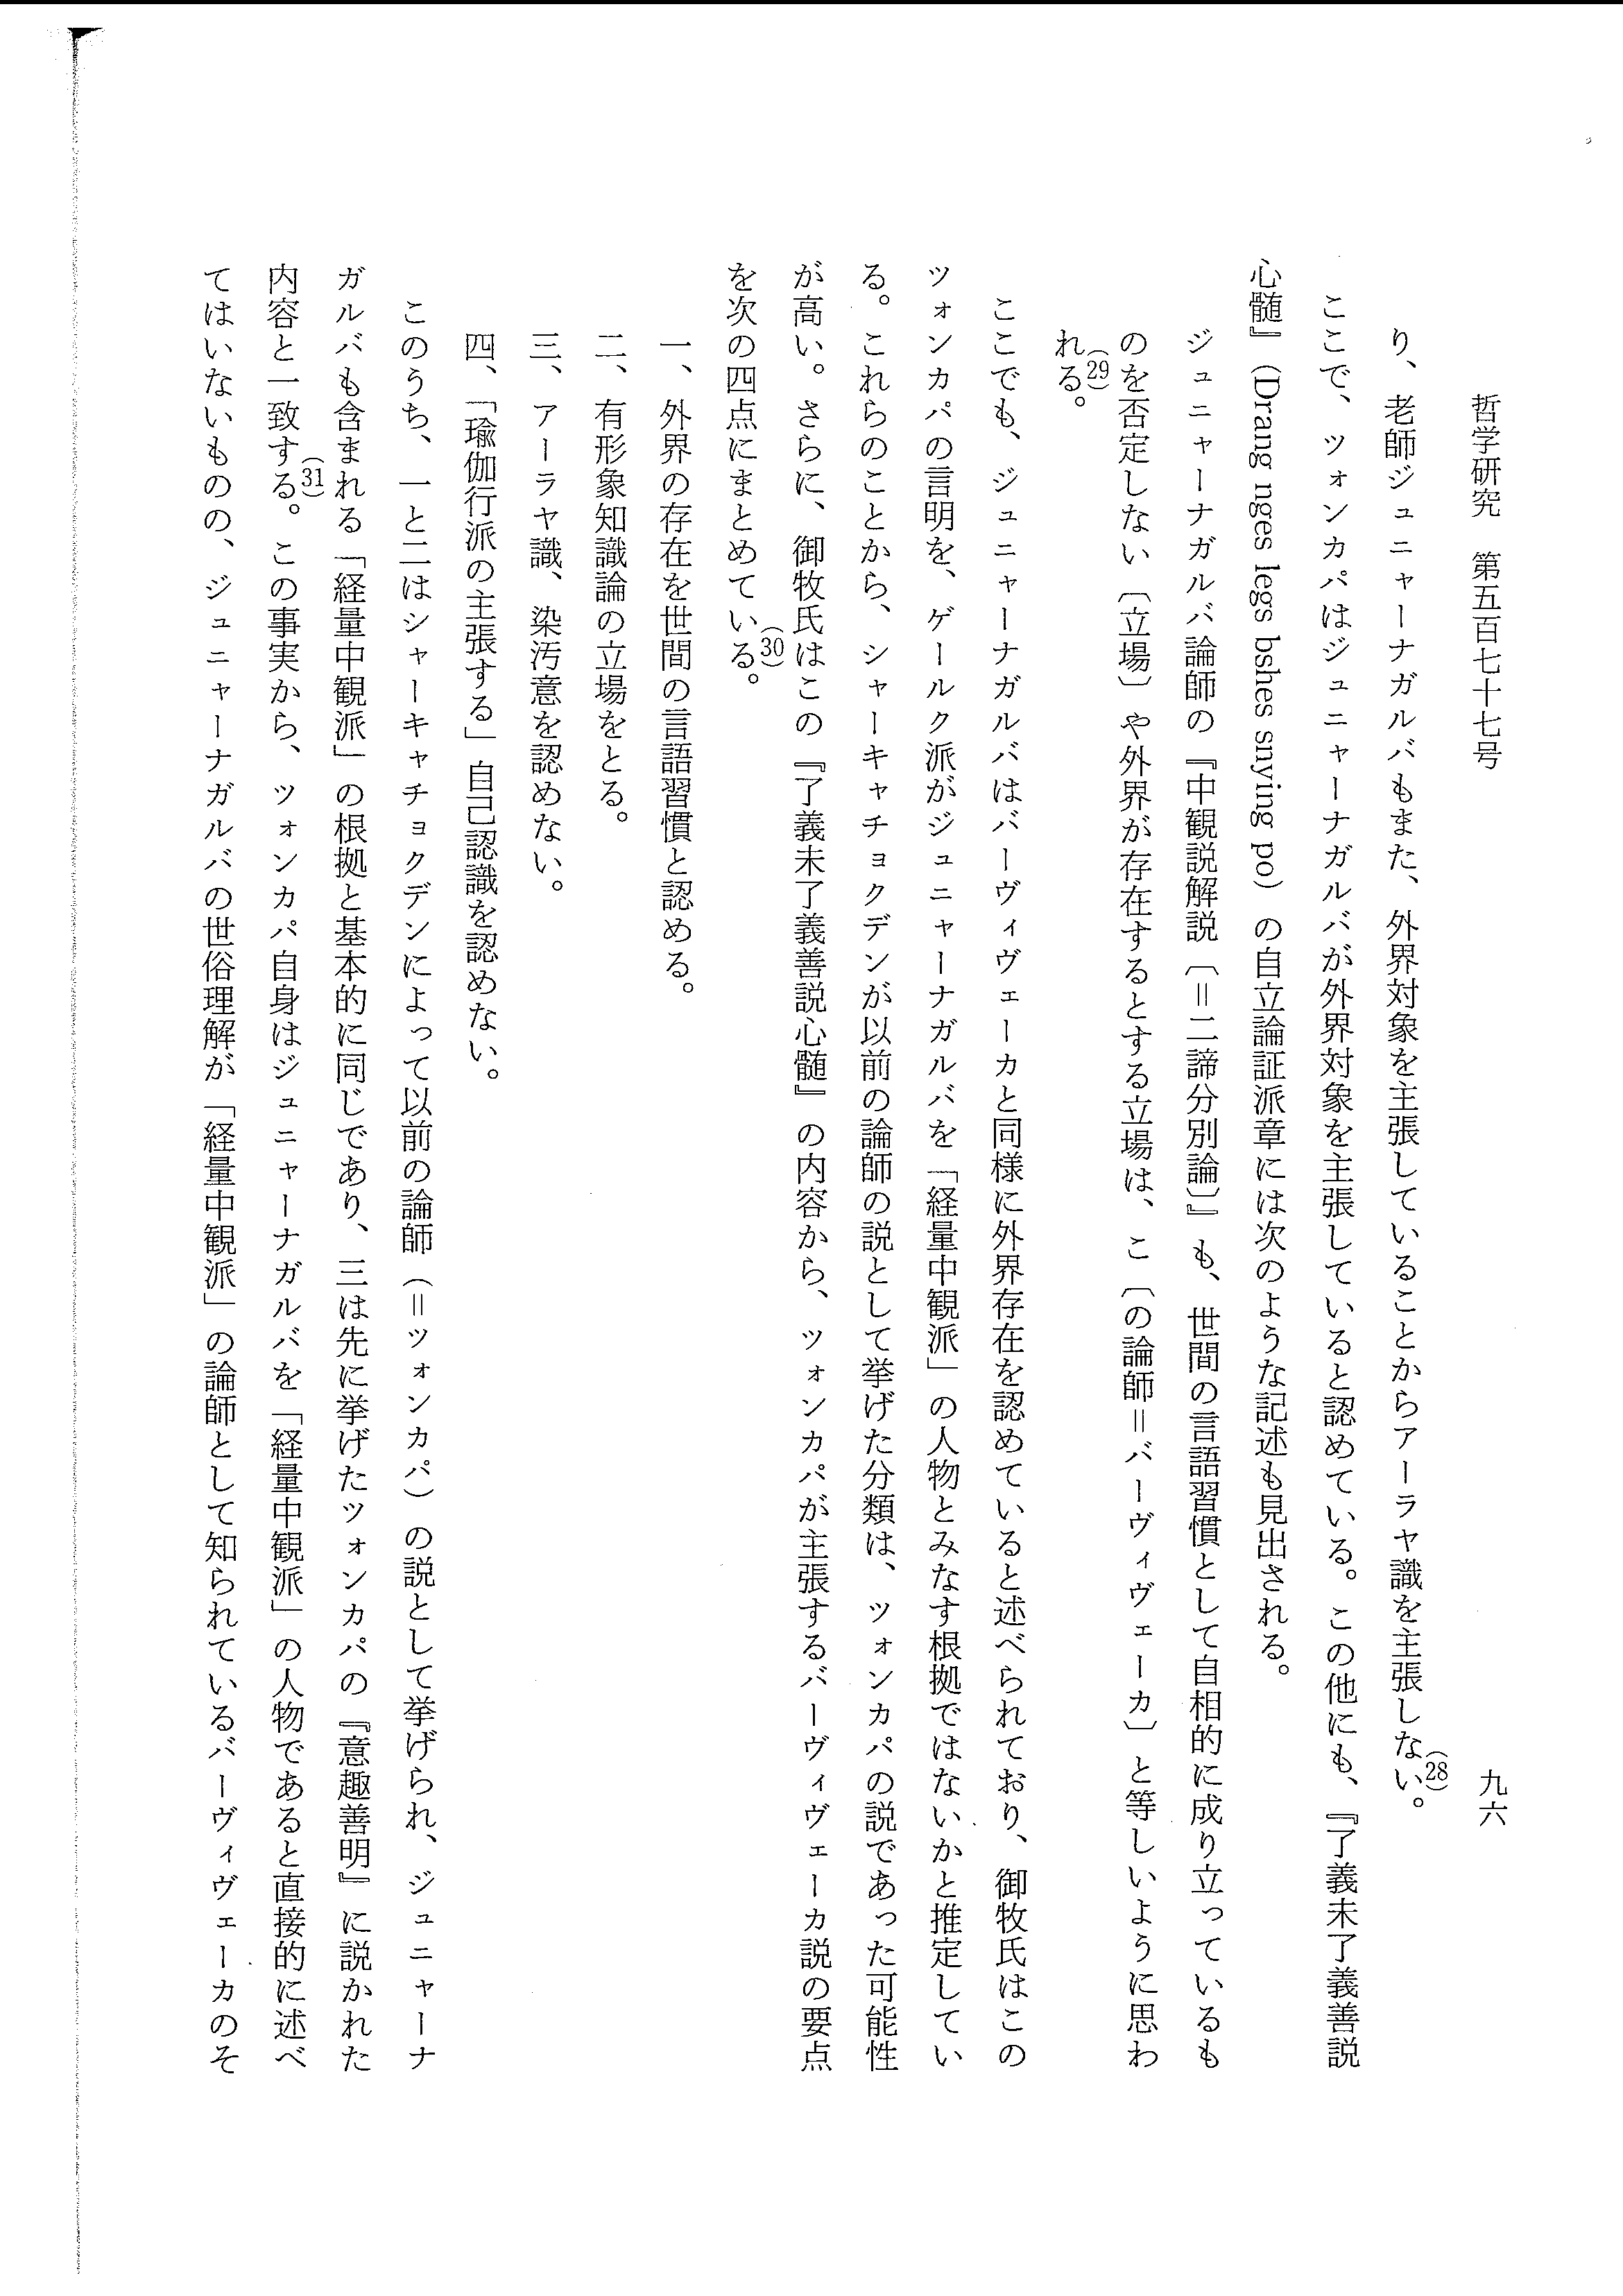 哲学研究　第五百七十七号
九六
り、老師ジュニャーナガルバもまた、外界対象を主張していることからアーラヤ識を主張しない。(28)
ここで、ツォンカパはジュニャーナガルバが外界対象を主張していると認めている。この他にも、『了義未了義善説
心髄』(Drang nges legs bshes snying po) の自立論証派章には次のような記述も見出される。
ジュニャーナガルバ論師の『中観説解説〔＝二諦分別論〕』も、世間の言語習慣として自相的に成り立っているも
のを否定しない〔立場〕や外界が存在するとする立場は、こ〔の論師＝バーヴィヴェーカ〕と等しいように思わ
れる。(29)
ここでも、ジュニャーナガルバはバーヴィヴェーカと同様に外界存在を認めていると述べられており、御牧氏はこの
ツォンカパの言明を、ゲールク派がジュニャーナガルバを「経量中観派」の人物とみなす根拠ではないかと推定してい
る。これらのことから、シャーキャチョクデンが以前の論師の説として挙げた分類は、ツォンカパの説であった可能性
が高い。さらに、御牧氏はこの『了義未了義善説心髄』の内容から、ツォンカパが主張するバーヴィヴェーカ説の要点
を次の四点にまとめている。(30)
一、外界の存在を世間の言語習慣と認める。
二、有形象知識論の立場をとる。
三、アーラヤ識、染汚意を認めない。
四、「瑜伽行派の主張する」自己認識を認めない。
このうち、一と二はシャーキャチョクデンによって以前の論師（＝ツォンカパ）の説として挙げられ、ジュニャーナ
ガルバも含まれる「経量中観派」の根拠と基本的に同じであり、三は先に挙げたツォンカパの『意趣善明』に説かれた
内容と一致する。(31)この事実から、ツォンカパ自身はジュニャーナガルバを「経量中観派」の人物であると直接的に述べ
てはいないものの、ジュニャーナガルバの世俗理解が「経量中観派」の論師として知られているバーヴィヴェーカのそ